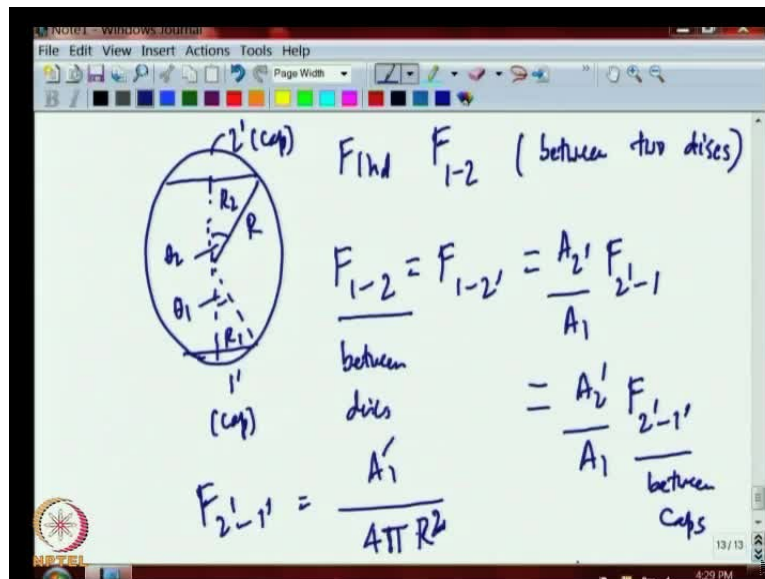 Note1 - Windows Journal
File Edit View Insert Actions Tools Help
Page Width
B I
2' (Cap)
R2
R
θ2
θ1
R1
1'
(Cap)
Find F1-2 (between two discs)
F1-2 = F1-2' = A2'/A1 F2'-1
between
discs
= A2'/A1 F2'-1'
between
Caps
F2'-1' = A1'/4πR²
13/13
NPTEL
4:29 PM